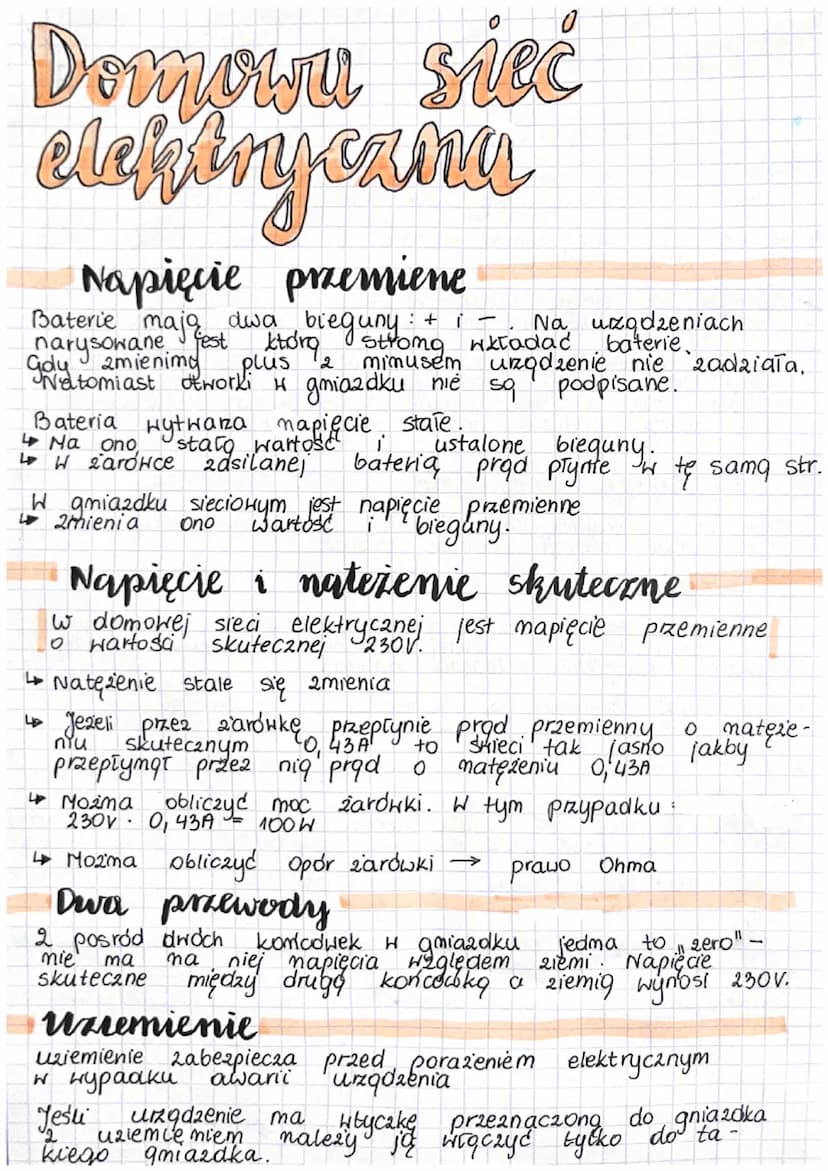 Domowa sieć
elektryczna
Napięcie przemiene
Baterie mają dwa bieguny: + i -. Na urządzeniach
narysowane jest którą stroną wkładać baterie.
Gdy zmienimy plus z minusem urządzenie nie zadziała.
Natomiast otworki w gniazdku nie są podpisane.
Bateria wytwarza napięcie stałe.
↳ Ma ono stałą wartość i ustalone bieguny.
↳ W żarówce zasilanej baterią prąd płynie w tę samą str.
W gniazdku sieciowym jest napięcie przemienne
↳ zmienia ono wartość i bieguny.
Napięcie i natężenie skuteczne
W domowej sieci elektrycznej jest napięcie przemienne
o wartości skutecznej 230V.
↳ Natężenie stale się zmienia
↳ Jeżeli przez żarówkę przepłynie prąd przemienny o natęże-
niu skutecznym 0,43A to świeci tak jasno jakby
przepłynął przez nią prąd o natężeniu 0,43A
↳ Można obliczyć moc żarówki. W tym przypadku:
230V · 0,43A = 100W
↳ Można obliczyć opór żarówki → prawo Ohma
Dwa przewody
Z pośród dwóch końcówek w gniazdku jedna to „zero" -
nie ma na niej napięcia względem ziemi. Napięcie
skuteczne między drugą końcówką a ziemią wynosi 230V.
Uziemienie
Uziemienie zabezpiecza przed porażeniem elektrycznym
w wypadku awarii urządzenia
Jeśli urządzenie ma wtyczkę przeznaczoną do gniazdka
z uziemieniem należy ją włączyć tylko do ta-
kiego gniazdka.